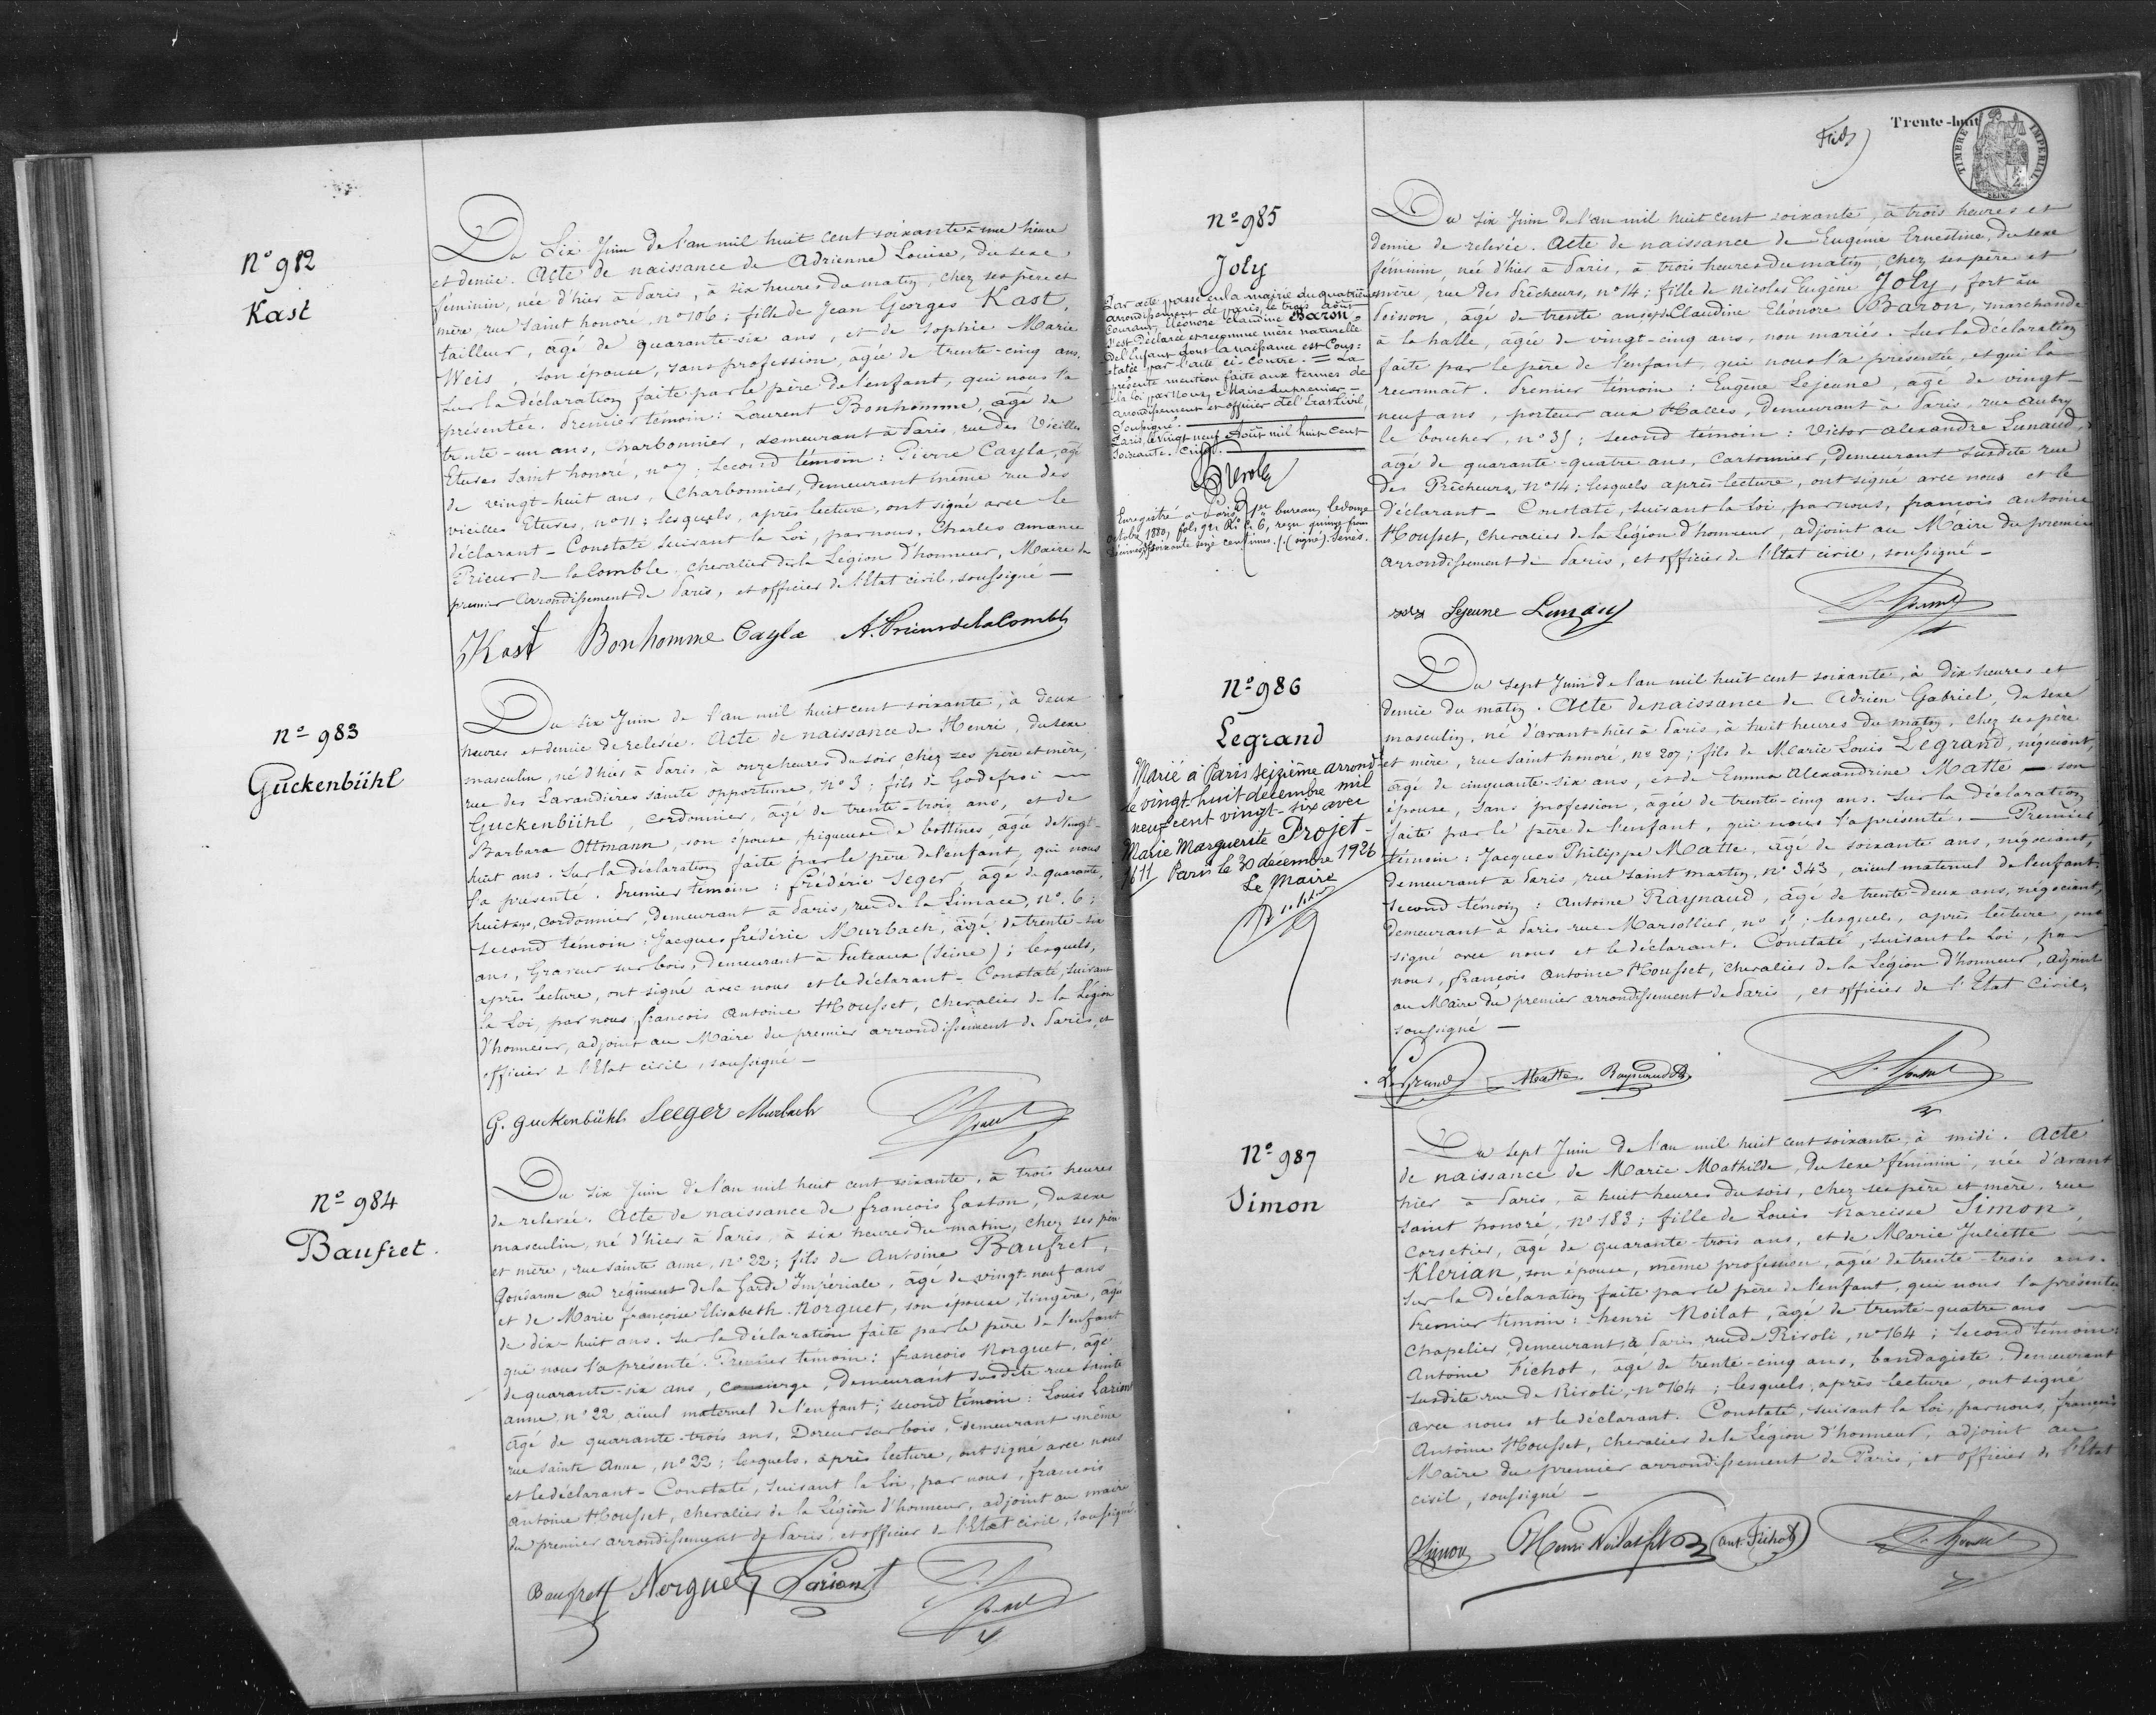 N° 982
Kast
Du Six Juin de l'an mil huit cent soixante à une heure
et demie. Acte de naissance de Adrienne Louise, du sexe
féminin, née d'hier à Paris, à six heures du matin, chez ses père et
mère, rue Saint honoré, n° 106 ; fille de Jean Georges Kast,
tailleur, âgé de quarante-six ans, et de Sophie Marie
Weis, son épouse, sans profession, âgée de trente-cinq ans.
Sur la déclaration faite par le père de l'enfant, qui nous l'a
présentée. Premier témoin : Laurent Bonhomme, âgé de
trente-un ans, Charbonnier, demeurant à Paris, rue des Vieilles
Etuves Saint honoré, n° 7 ; second témoin : Pierre Cayla, âgé
de vingt-huit ans, Charbonnier, demeurant même rue des
vieilles Etuves, n° 11 ; lesquels, après lecture, ont signé avec le
déclarant - Constaté, suivant la Loi, par nous, Charles amance
Prieur de la Comble, chevalier de la Légion d'honneur, Maire du
premier arrondissement de Paris, et officier de l'Etat civil, soussigné —
Kast Bonhomme Cayla A. Prieur de la Comble
N° 983
Guckenbühl
Du six Juin de l'an mil huit cent soixante, à deux
heures et demie de relevée. Acte de naissance de Henri, du sexe
masculin, né d'hier à Paris, à onze heures du soir, chez ses père et mère,
rue des Lavandières sainte opportune, n° 3 ; fils de Godefroi —
Guckenbühl, cordonnier, âgé de trente-trois ans, et de
Barbara Ottmann, son épouse, piqueuse de bottines, âgée de vingt-
huit ans. Sur la déclaration faite par le père de l'enfant, qui nous
l'a présenté. Premier témoin : frédéric Seger, âgé de quarante,
huit ans, cordonnier, demeurant à Paris, rue de la Limace, n° 6 ;
second témoin : Jacques frédéric Murbach, âgé de trente-six
ans, Graveur sur bois, demeurant à Puteaux (Seine) ; lesquels,
après lecture, ont signé avec nous et le déclarant - Constaté, suivant
la Loi, par nous françois Antoine Housset, chevalier de la Légion
d'honneur, adjoint au Maire du premier arrondissement de Paris, et
officier de l'Etat civil, soussigné —
G. Guckenbühl Seeger Murbach
N° 984
Baufret.
Du six Juin de l'an mil huit cent soixante, à trois heures
de relevée. Acte de naissance de françois Gaston, du sexe
masculin, né d'hier à Paris, à six heures du matin, chez ses père
et mère, rue sainte anne, n° 22 ; fils de Antoine Baufret,
Gendarme au régiment de la Garde Impériale, âgé de vingt-neuf ans
et de Marie françoise Elisabeth Norguet, son épouse, lingère, âgée
de dix huit ans. Sur la déclaration faite par le père de l'enfant
qui nous l'a présenté. Premier témoin : françois Norguet, âgé
de quarante-six ans, concierge, demeurant susdite rue Sainte
anne n° 22, aïeul maternel de l'enfant ; second témoin : Louis Lariont
âgé de quarante-trois ans, Doreur sur bois, demeurant même
rue sainte Anne, n° 22 ; lesquels, après lecture, ont signé avec nous
et le déclarant - Constaté, suivant la Loi, par nous, françois
Antoine Housset, chevalier de la Légion d'honneur, adjoint au maire
du premier arrondissement de Paris, et officier de l'Etat civil, soussigné.
Baufret Norguet Lariont
Trente-huit
TIMBRE IMPERIAL
SEINE
N° 985
Joly
Par acte passé en la mairie du quatrième
arrondissement de Paris, le trois août
courant, Eléonore Claudine Baron
s'est déclarée et reconnue mère naturelle
de l'Enfant dont la naissance est Cons:
-tatée par l'acte ci-contre. = La
présente mention faite aux termes de
la Loi par Nous, Maire du premier —
arrondissement et officier de l'Etat Civil,
Soussigné.
Paris, le vingt neuf Août mil huit cent
soixante. cinq.
Enregistré à Paris, 1er bureau, le douze
octobre 1880, fol. 92, Ro. C. 6, reçu quinze francs
décimes soixante seize centimes. (signé)
Du six Juin de l'an mil huit cent soixante, à trois heures et
demie de relevée. Acte de naissance de Eugénie Ernestine, du sexe
féminin, née d'hier à Paris, à trois heures du matin, chez ses père et
mère, rue des Prêcheurs, n° 14 ; fille de Nicolas Eugène Joly, fort au
poisson, âgé de trente ans, et de Claudine Eléonore Baron, marchande
à la halle, âgée de vingt-cinq ans, non mariés. Sur la déclaration
faite par le père de l'enfant, qui nous l'a présentée, et qui la
reconnaît. Premier témoin : Eugène Lejeune, âgé de vingt-
neuf ans, porteur aux Halles, demeurant à Paris, rue Aubry
le boucher, n° 35 ; second témoin : Victor Alexandre Lunaud,
âgé de quarante-quatre ans, Cartonnier, demeurant susdite rue
des Prêcheurs, n° 14 ; lesquels après lecture, ont signé avec nous et le
déclarant - Constaté, suivant la Loi, par nous, françois antoine
Housset, chevalier de la Légion d'honneur, adjoint au Maire du premier
arrondissement de Paris, et officier de l'Etat civil, soussigné —
Lejeune
N° 986
Legrand
Marié à Paris seizième arrondt
le vingt-huit décembre mil
neuf cent vingt-six avec
Marie Marguerite Projet -
1611 Paris le 30 décembre 1926
Le Maire
Du sept Juin de l'an mil huit cent soixante, à dix heures et
demie du matin. Acte de naissance de Adrien Gabriel, du sexe
masculin, né d'avant-hier à Paris, à huit heures du matin, chez ses père
et mère, rue Saint honoré, n° 207 ; fils de Marie Louis Legrand, négociant,
âgé de cinquante-six ans, et de Emma Alexandrine Matte — son
épouse, sans profession, âgée de trente-cinq ans. Sur la déclaration
faite par le père de l'enfant, qui nous l'a présenté. — Premier
témoin : Jacques Philippe Matte, âgé de soixante ans, négociant,
demeurant à Paris, rue Saint martin, n° 343, aïeul maternel de l'enfant :
second témoin : Antoine Raynaud, âgé de trente-deux ans, négociant,
demeurant à Paris rue Marsollier, n° ; lesquels, après lecture, ont
signé avec nous et le déclarant. Constaté, suivant la Loi, par
nous, françois Antoine Housset, chevalier de la Légion d'honneur, adjoint
au Maire du premier arrondissement de Paris, et officier de l'Etat Civil,
soussigné —
Legrand Matte Raynaud
N° 987
Simon
Du sept Juin de l'an mil huit cent soixante, à midi. Acte
de naissance de Marie Mathilde, du sexe féminin, née d'avant
hier à Paris, à huit heures du soir, chez ses père et mère, rue
Saint honoré, n° 183 ; fille de Louis Narcisse Simon,
corsetier, âgé de quarante-trois ans, et de Marie Juliette —
Klerian, son épouse, même profession, âgée de trente-trois ans.
Sur la déclaration faite par le père de l'enfant, qui nous l'a présentée
Premier témoin : henri Noilat, âgé de trente-quatre ans —
Chapelier, demeurant à Paris, rue de Rivoli, n° 164 ; second témoin :
Antoine Fichot, âgé de trente-cinq ans, bandagiste, demeurant
susdite rue de Rivoli, n° 164 ; lesquels, après lecture, ont signé
avec nous et le déclarant. Constaté, suivant la Loi, par nous, françois
Antoine Housset, chevalier de la Légion d'honneur, adjoint au
Maire du premier arrondissement de Paris, et officier de l'Etat
civil, soussigné —
Simon Henri Noilat ant. Fichot